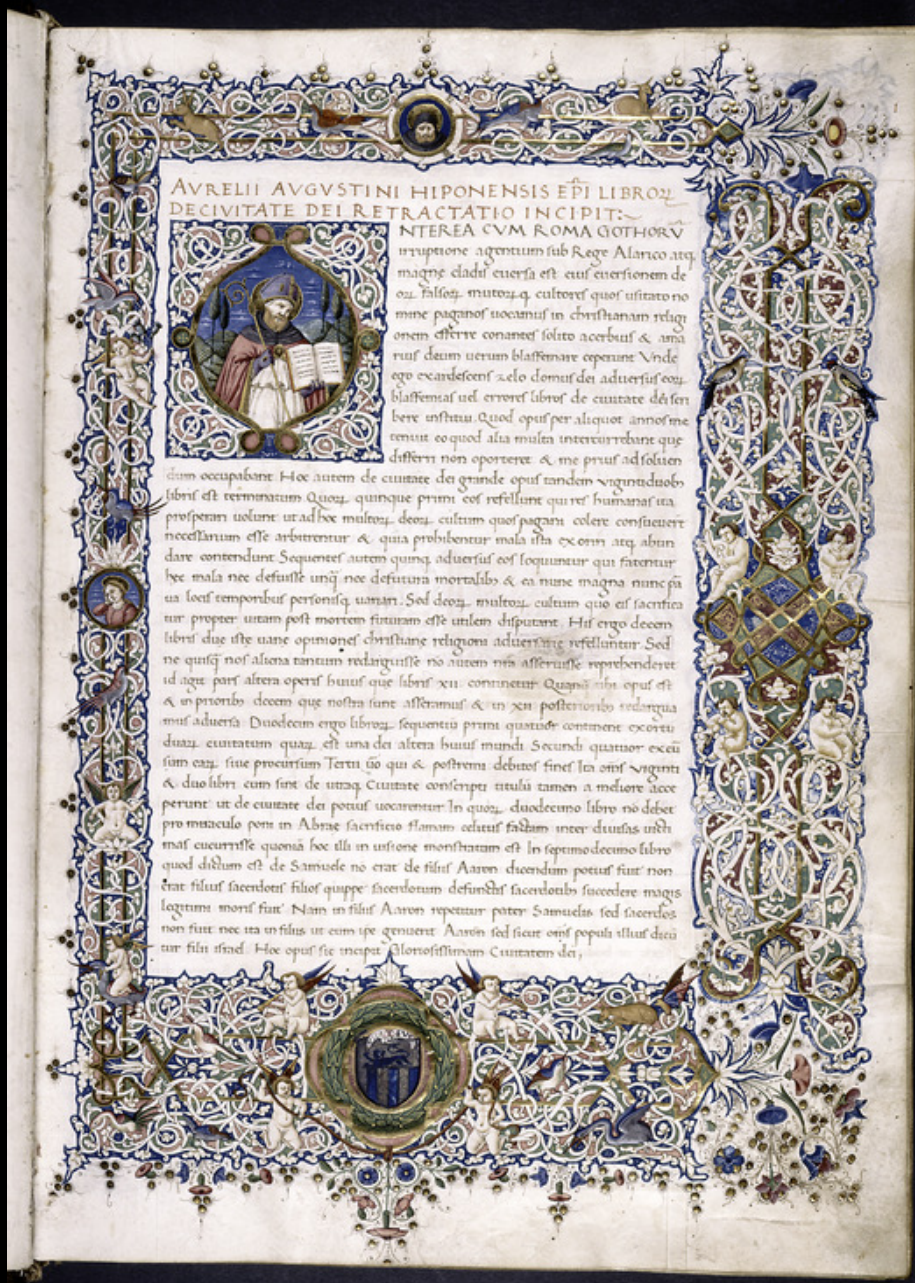 AVRELII AVGVSTINI HIPONENSIS EP̄I LIBROꝜ
DE CIVITATE DEI RETRACTATIO INCIPIT:~
NTEREA CVM ROMA GOTHORV̄
irruptione agentium sub Rege Alarico atq;
magnę cladis euersa est eius euersionem de
oꝝ falsoꝝ mutoꝝq cultores quos usitato no
mine paganos uocamus in christianam religi
onem efferre conantes solito acerbius & ama
rius deum uerum blasfemare ceperunt Vnde
ego exardescens zelo domus dei aduersus eoꝝ
blasfemias uel errores libros de ciuitate dei scri
bere institui. Quod opus per aliquot annos me
tenuit eo quod alia multa intercurrebant que
differri non oporteret & me prius ad soluen
dum occupabant. Hoc autem de ciuitate dei grande opus tandem uigintiduobȝ
libris est terminatum Quoꝝ quinque primi eos refellunt qui res humanas ita
prosperari uolunt ut ad hoc multoꝝ deoꝝ cultum quos pagani colere consueuert
necessarium esse arbitrentur & quia prohibentur mala ista exoriri atq; abun
dare contendunt Sequentes autem quinq; aduersus eos loquuntur qui fatentur
hec mala nec defuisse unq̄ nec defutura mortalibȝ & ea nunc magna nunc pa
ua locis temporibus personisq; uariari. Sed deoꝝ multoꝝ cultum quo eis sacrifica
tur propter uitam post mortem futuram esse utilem disputant. His ergo decem
libris due iste uane opiniones christiane religioni aduersarie refelluntur Sed
ne quisq̄ nos aliena tantum redarguisse nō autem nr̄a asseruisse reprehenderet
id agit pars altera operis huius que libris XII continetur Quanq̄ ubi opus est
& in prioribȝ decem que nostra sunt asseramus & in XII posterioribȝ redargua
mus aduersa. Duodecim ergo libroꝝ sequentiū primi quatuor continent exortū
duaꝝ ciuitatum quaꝝ est una dei altera huius mundi Secundi quatuor excū
sum eaꝝ siue procursum Tertii ūo qui & postremi debitos fines Ita om̄s uiginti
& duo libri cum sint de utraq; Ciuitate conscripti titulū tamen a meliore acce
perunt ut de ciuitate dei potius uocarentur In quoꝝ duodecimo libro nō debet
pro miraculo poni in Abrae sacrificio flamam celitus factam inter diuisas uicti
mas cucurrisse quoniā hoc illi in uisione monstratum est In septimodecimo libro
quod dictum est de Samuele nō erat de filiis Aaron dicendum potius fuit non
erat filius sacerdotis filios quippe sacerdotum defunctis sacerdotibȝ succedere magis
legitimi moris fuit Nam in filiis Aaron repetitur pater Samuelis sed sacerdos
non fuit nec ita in filiis ut eum ipe genuerit Aaron sed sicut om̄s populi illius dicū
tur filii israel. Hoc opus sic incipit Gloriosissimam Ciuitatem dei;